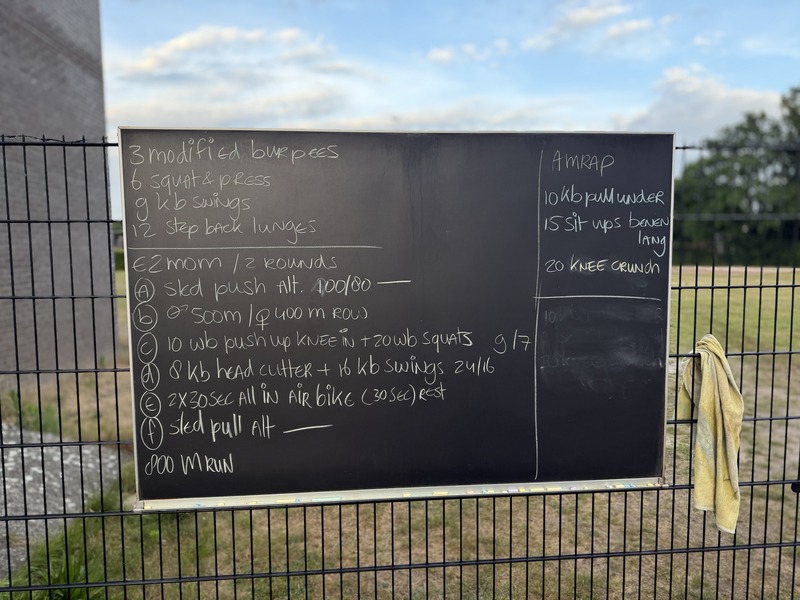 3 modified burpees
6 squat & press
9 kb swings
12 step back lunges
E2mom / 2 ROUNDS
(A) sled push Alt. 100/80 —
(b) ♂ 500m / ♀ 400 m ROW
(c) 10 wb push up KNEE iN + 20 wb squats 9/7
(d) 8 kb head cutter + 16 kb swings 24/16
(e) 2X30SEC All iN AiR biKE (30 SEC) REST
(f) sled pull Alt —
800 M RUN
AMRAP
10 Kb pull under
15 sit ups benen
lang
20 KNEE CRUNCH